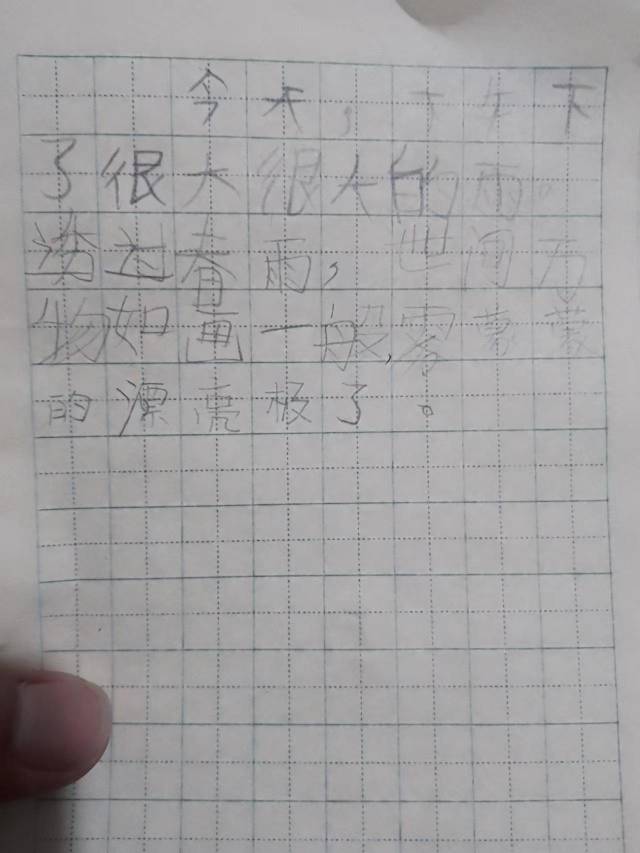 今天，下午下
了很大很大的雨。
透过春雨，世间万
物如画一般，雾蒙蒙
的漂亮极了。